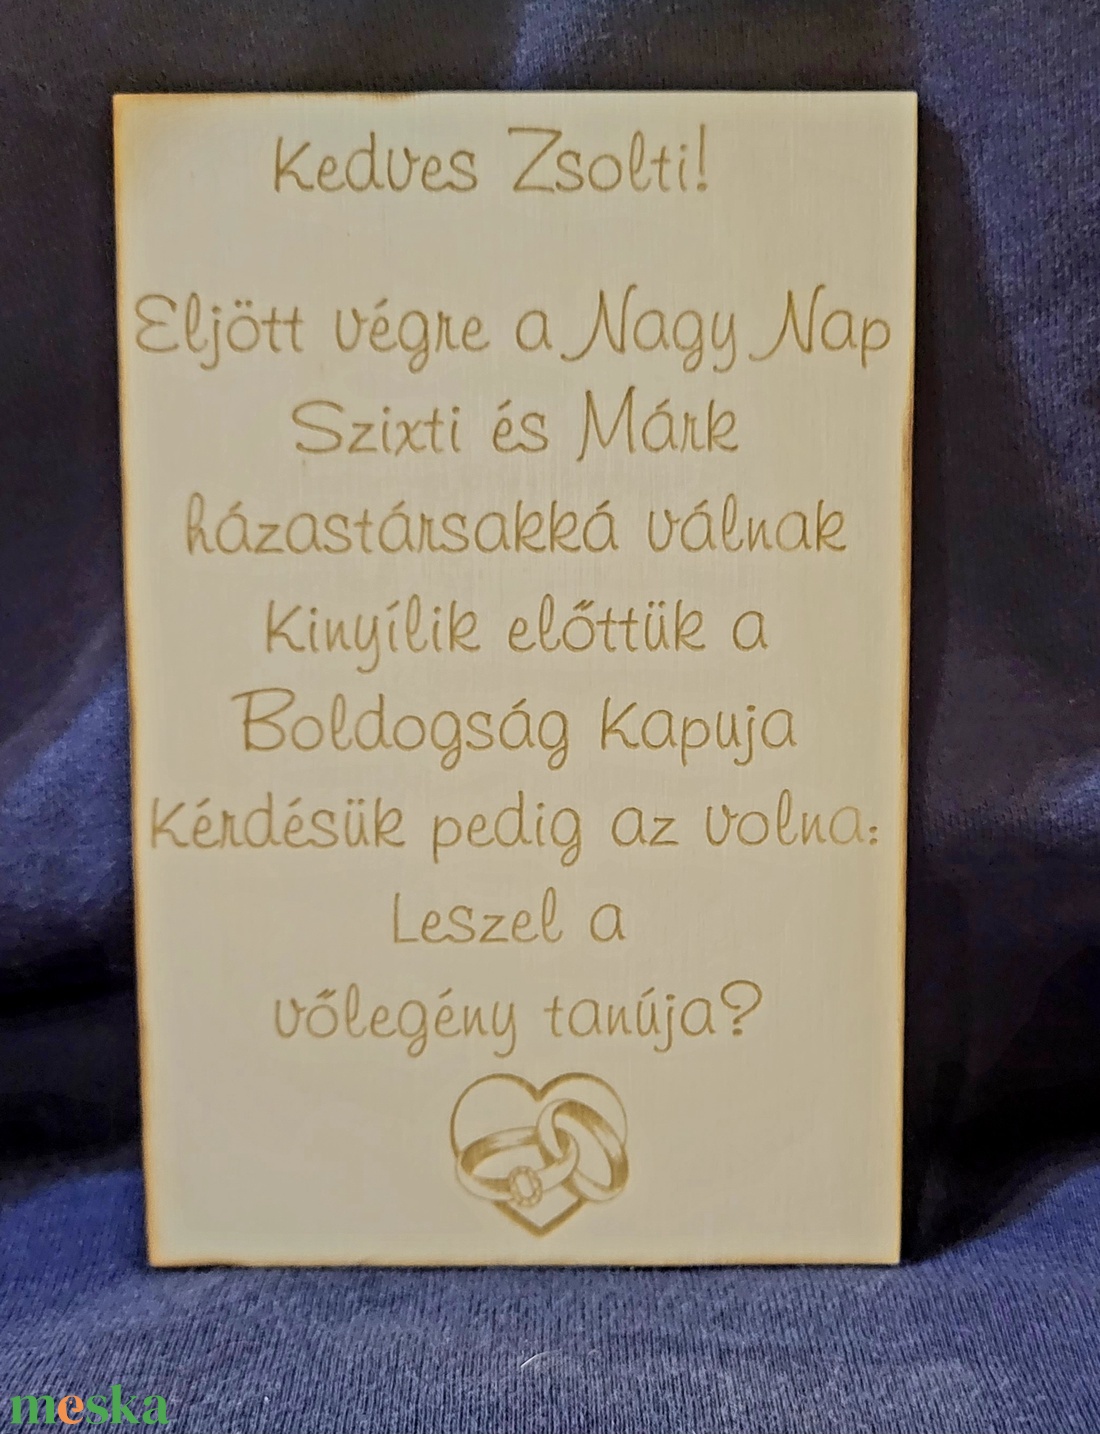 Kedves Zsolti!
Eljött végre a Nagy Nap
Szixti és Márk
házastársakká válnak
Kinyílik előttük a
Boldogság Kapuja
Kérdésük pedig az volna:
Leszel a
vőlegény tanúja?
meska